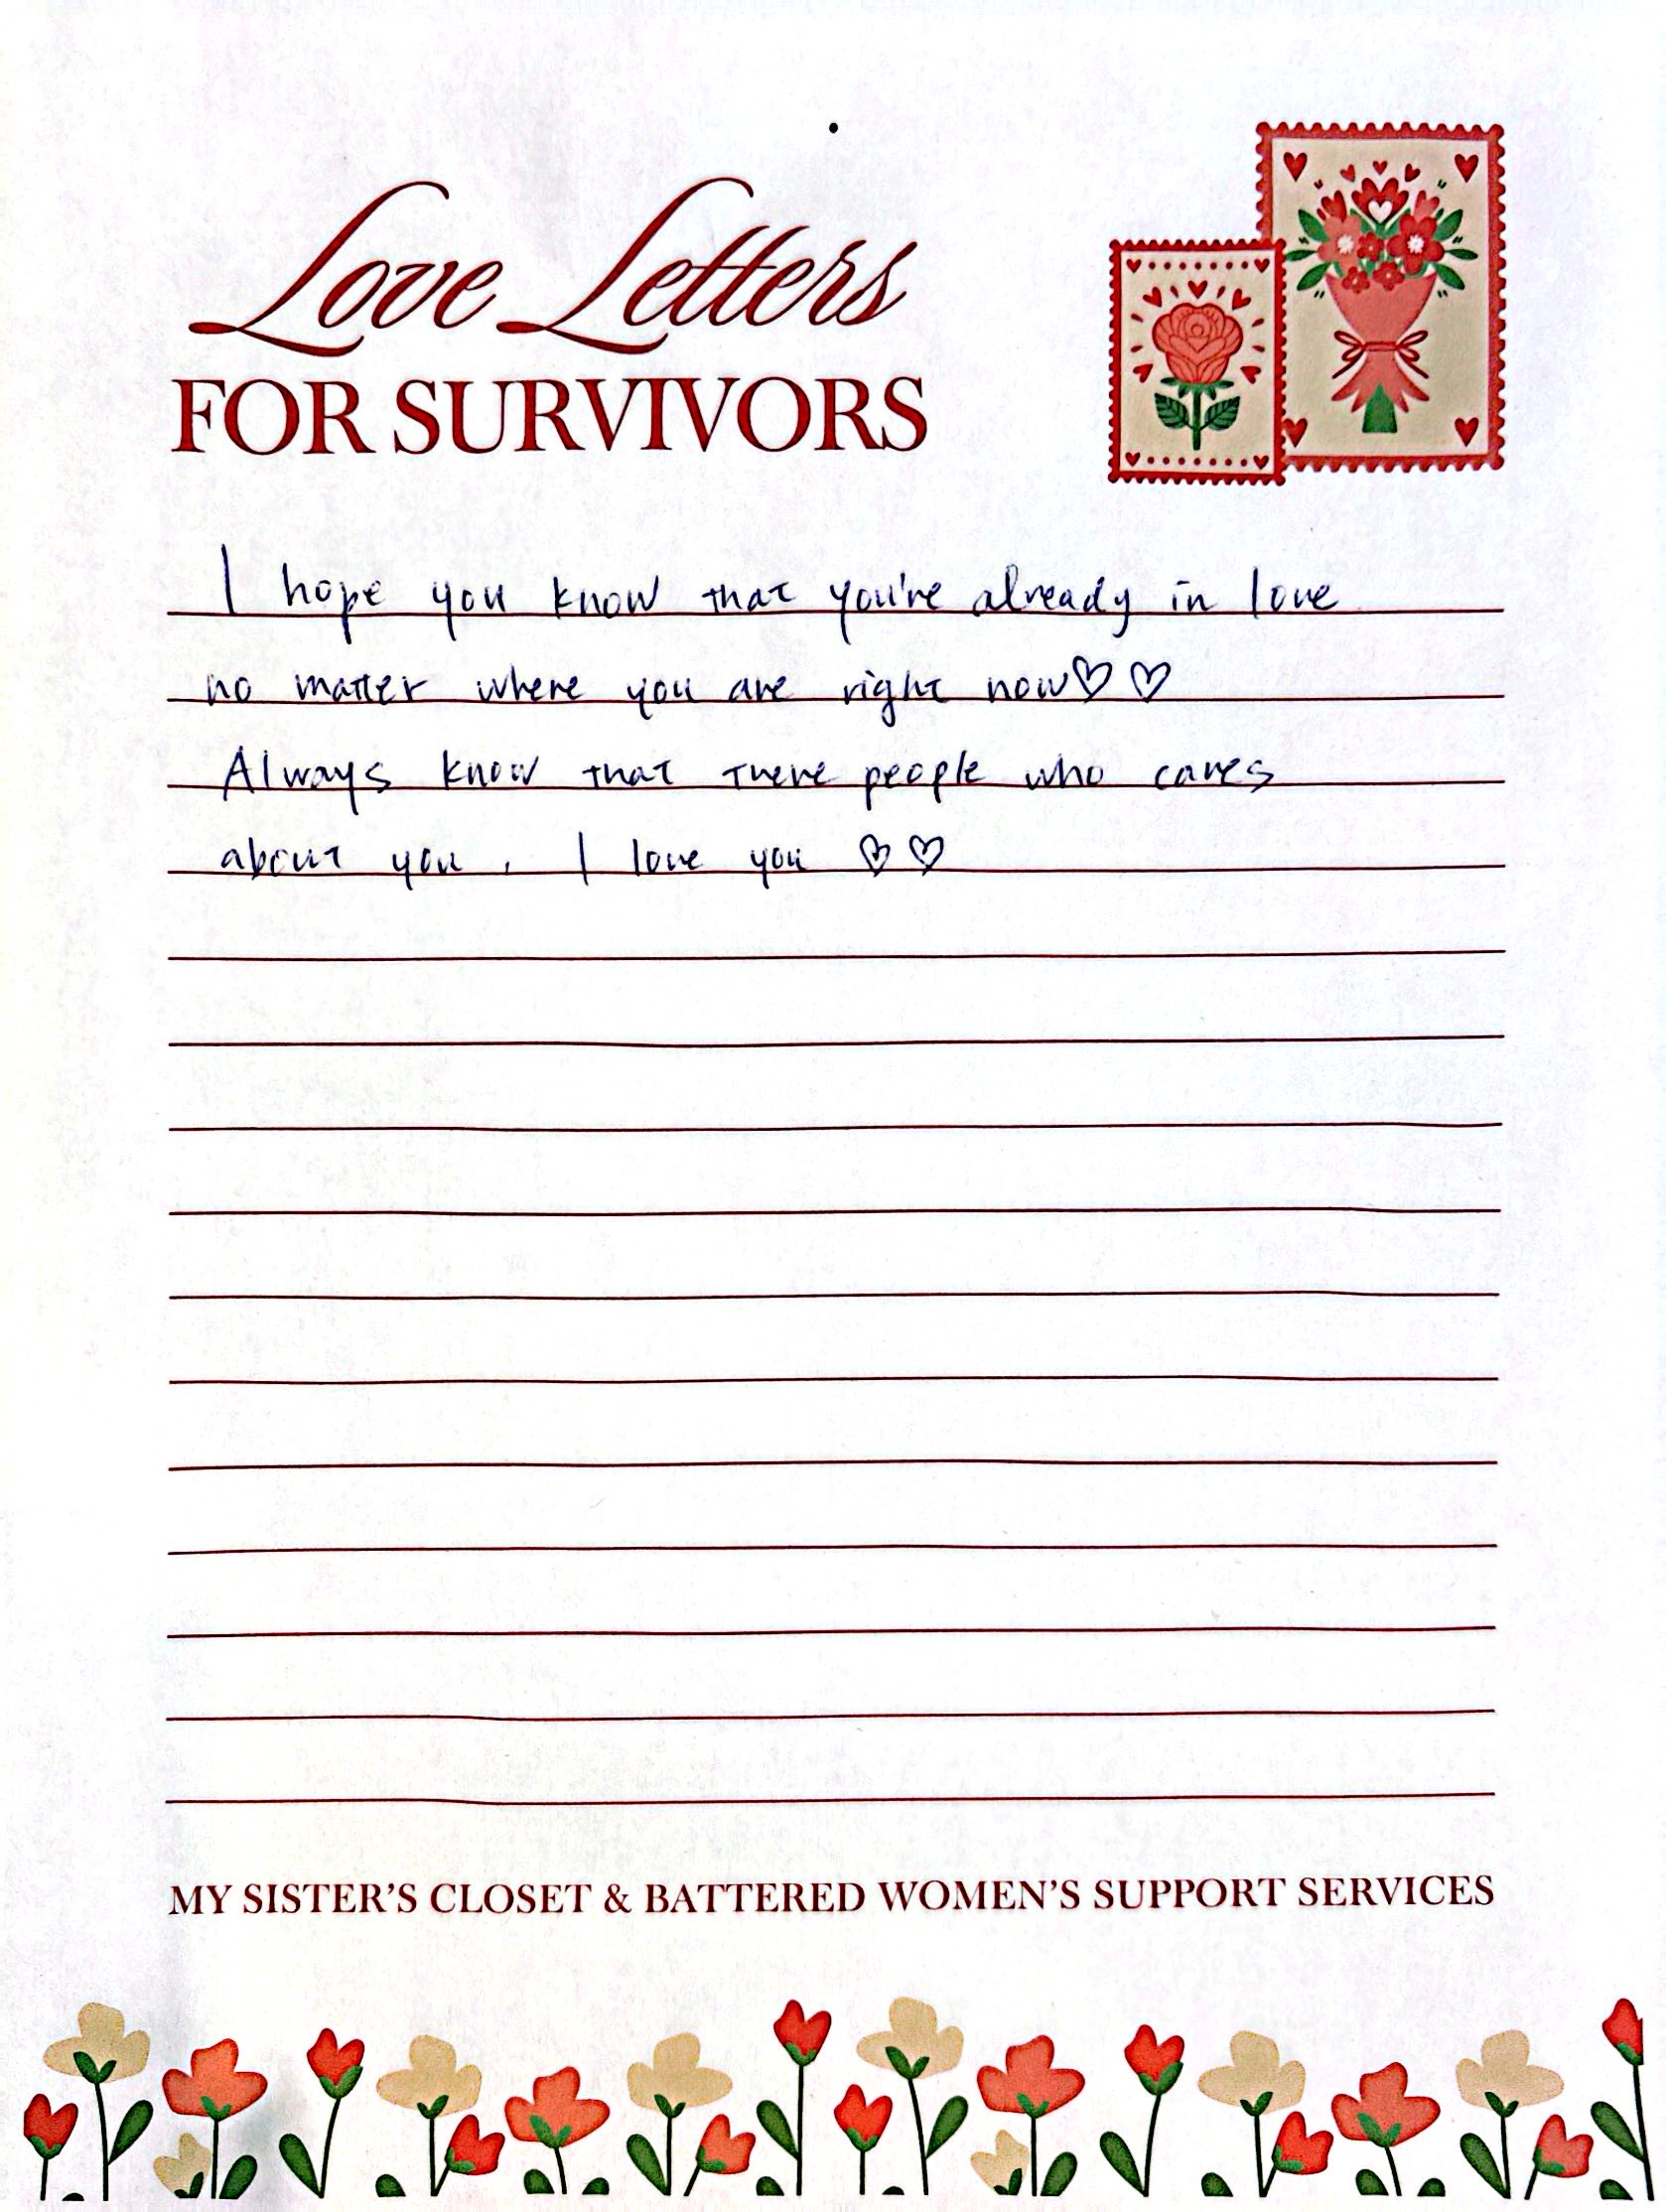 Love Letters
FOR SURVIVORS
I hope you know that you're already in love
no matter where you are right now♡♡
Always know that there people who cares
about you, I love you ♡♡
MY SISTER'S CLOSET & BATTERED WOMEN'S SUPPORT SERVICES